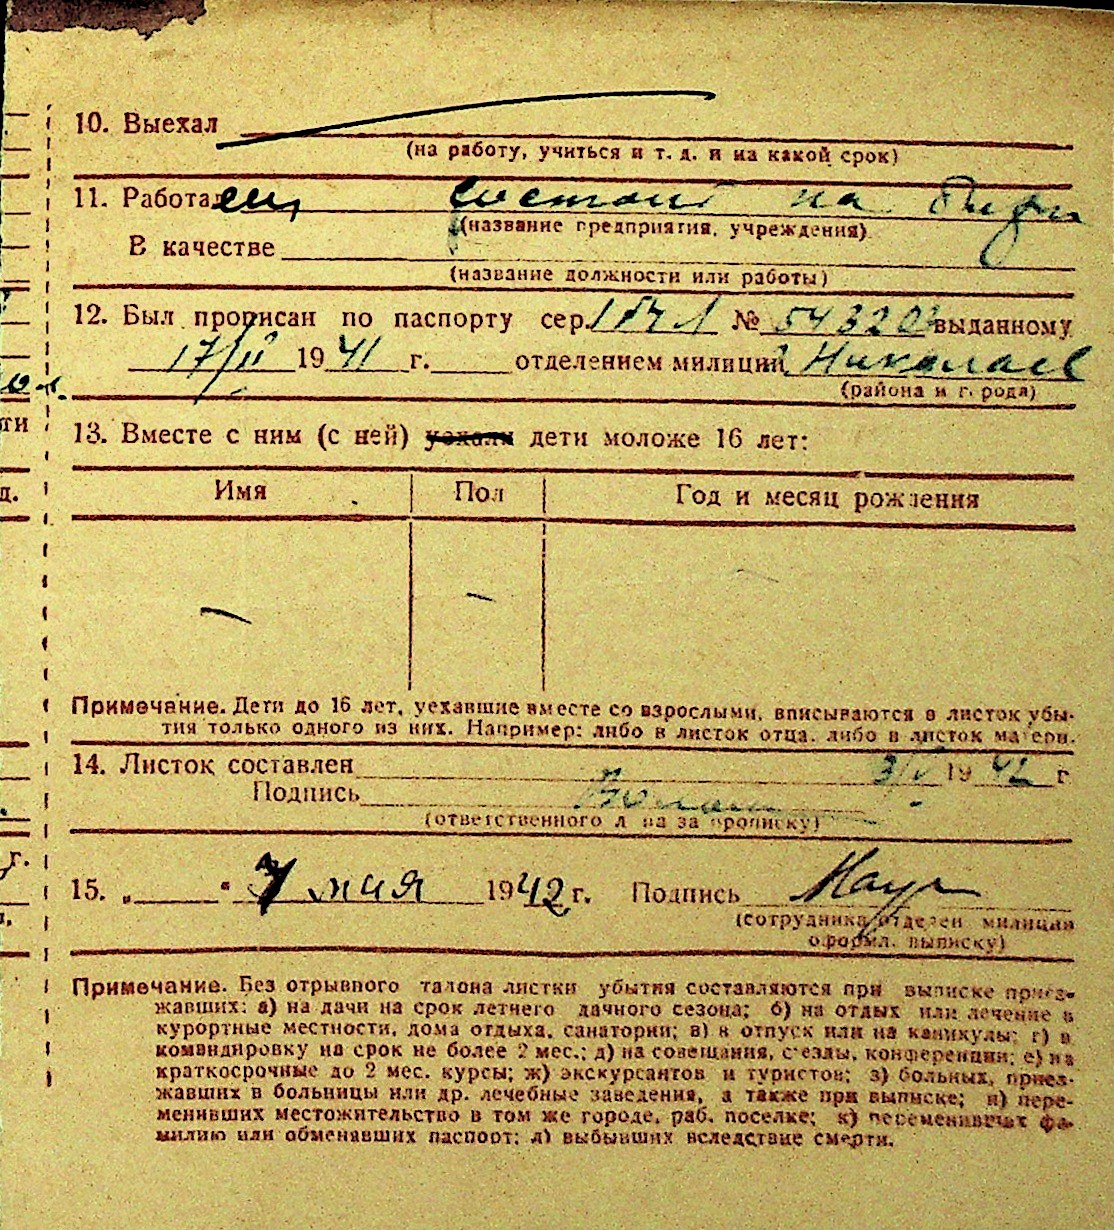 10. Выехал
(на работу, учиться и т. д. и на какой срок)
11. Работал
состоит на
(название предприятия, учреждения)
В качестве
(название должности или работы)
12. Был прописан по паспорту сер. № 543203 выданному
17/II 1941 г. отделением милиции Николаев
(района и города)
13. Вместе с ним (с ней) уехали дети моложе 16 лет:
Имя Пол Год и месяц рождения
— —
Примечание. Дети до 16 лет, уехавшие вместе со взрослыми, вписываются в листок убы-
тия только одного из них. Например: либо в листок отца, либо в листок матери.
14. Листок составлен 3/V 1942 г
Подпись
(ответственного лица за прописку)
15. „ “ 7 мая 1942 г. Подпись
(сотрудника отделен милиции
оформл. выписку)
Примечание. Без отрывного талона листки убытия составляются при выписке приез-
жавших: а) на дачи на срок летнего дачного сезона; б) на отдых или лечение в
курортные местности, дома отдыха, санатории; в) в отпуск или на каникулы; г) в
командировку на срок не более 2 мес.; д) на совещания, съезды, конференции; е) на
краткосрочные до 2 мес. курсы; ж) экскурсантов и туристов; з) больных, приез-
жавших в больницы или др. лечебные заведения, а также при выписке; и) пере-
менивших местожительство в том же городе, раб. поселке; к) переменивших фа-
милию или обменявших паспорт; л) выбывших вследствие смерти.